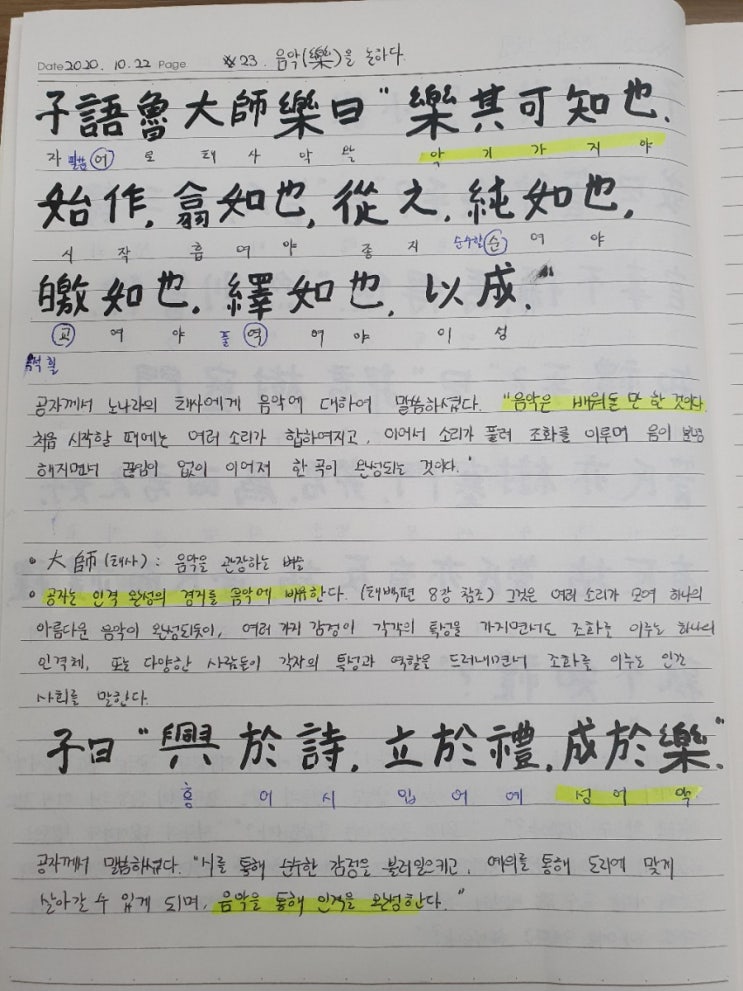 Date 2020. 10. 22 Page ※ 23. 음악(樂)을 논하다.
子語魯大師樂曰 "樂其可知也.
자 말씀 어 로 태 사 악 왈 악 기 가 지 야
始作, 翕如也, 從之, 純如也,
시 작 흡 여 야 종 지 순수할 순 여 야
皦如也, 繹如也, 以成."
교 여 야 풀 역 여 야 이 성
옥석 흴
공자께서 노나라의 태사에게 음악에 대하여 말씀하셨다. "음악은 배워둘 만 한 것이다.
처음 시작할 때에는 여러 소리가 합하여지고, 이어서 소리가 풀려 조화를 이루며 음이 분명
해지면서 끊임이 없이 이어져 한 곡이 완성되는 것이다."
• 大師(태사) : 음악을 관장하는 벼슬
• 공자는 인격 완성의 경지를 음악에 비유한다. (태백편 8장 참조) 그것은 여러 소리가 모여 하나의
아름다운 음악이 완성되듯이, 여러 가지 감정이 각각의 특성을 가지면서도 조화를 이루는 하나의
인격체, 또는 다양한 사람들이 각자의 특성과 역할을 드러내면서 조화를 이루는 인간
사회를 말한다.
子曰 "興於詩, 立於禮, 成於樂."
흥 어 시 입 어 예 성 어 악
공자께서 말씀하셨다. "시를 통해 순수한 감정을 불러일으키고, 예의를 통해 도리에 맞게
살아갈 수 있게 되며, 음악을 통해 인격을 완성한다."